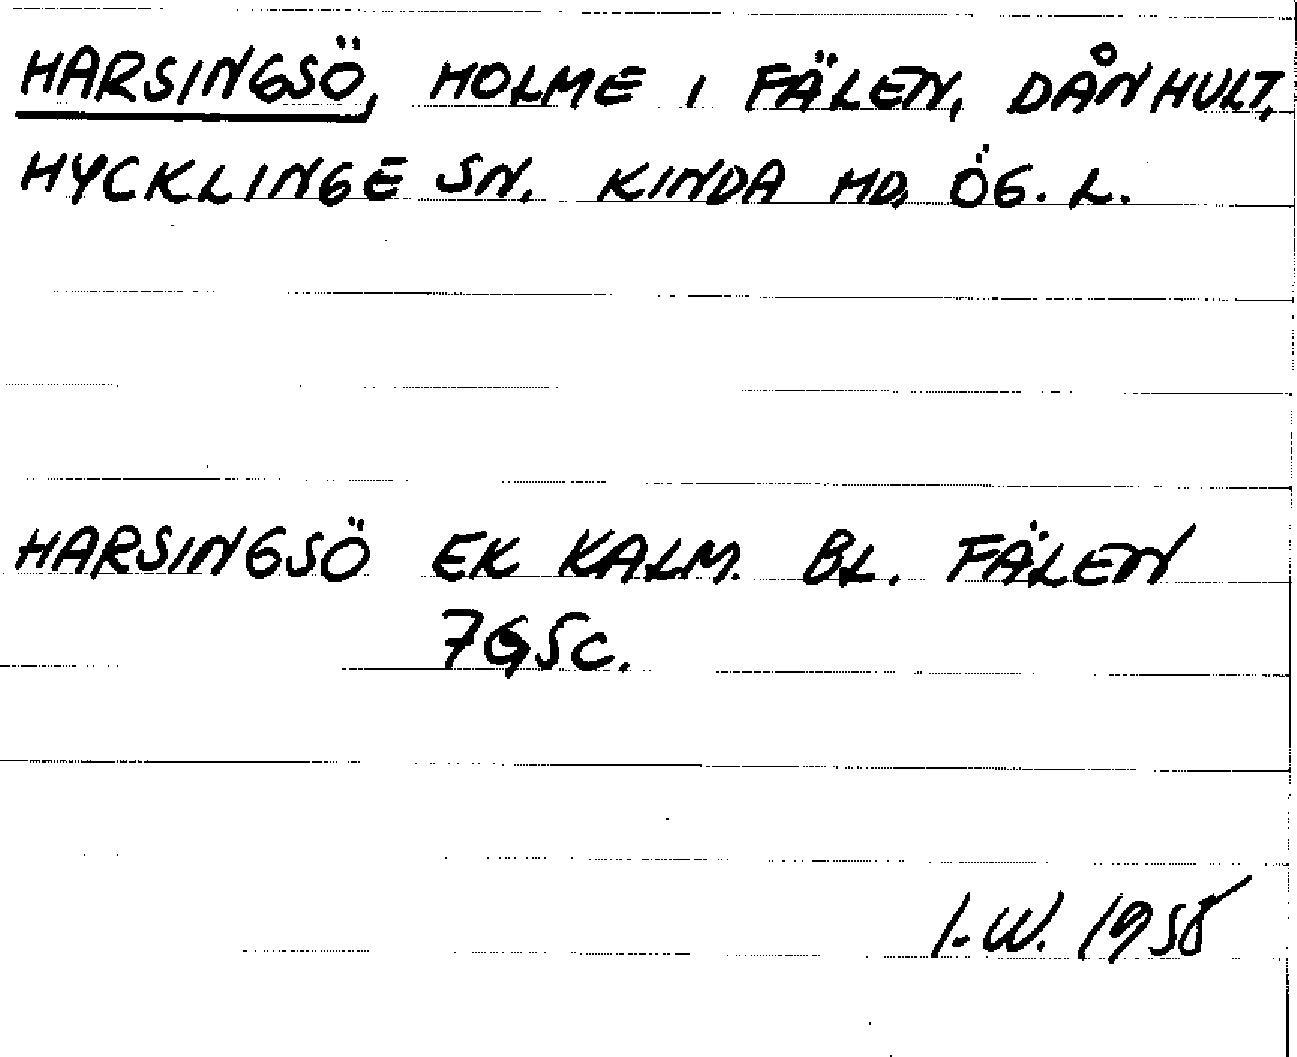 HARSINGSÖ, HOLME I FÄLEN, DÅNHULT,
HYCKLINGE SN. KINDA HD, ÖG. L.
HARSINGSÖ EK KALM. BL. FÄLEN
7G5c.
I.W. 1958